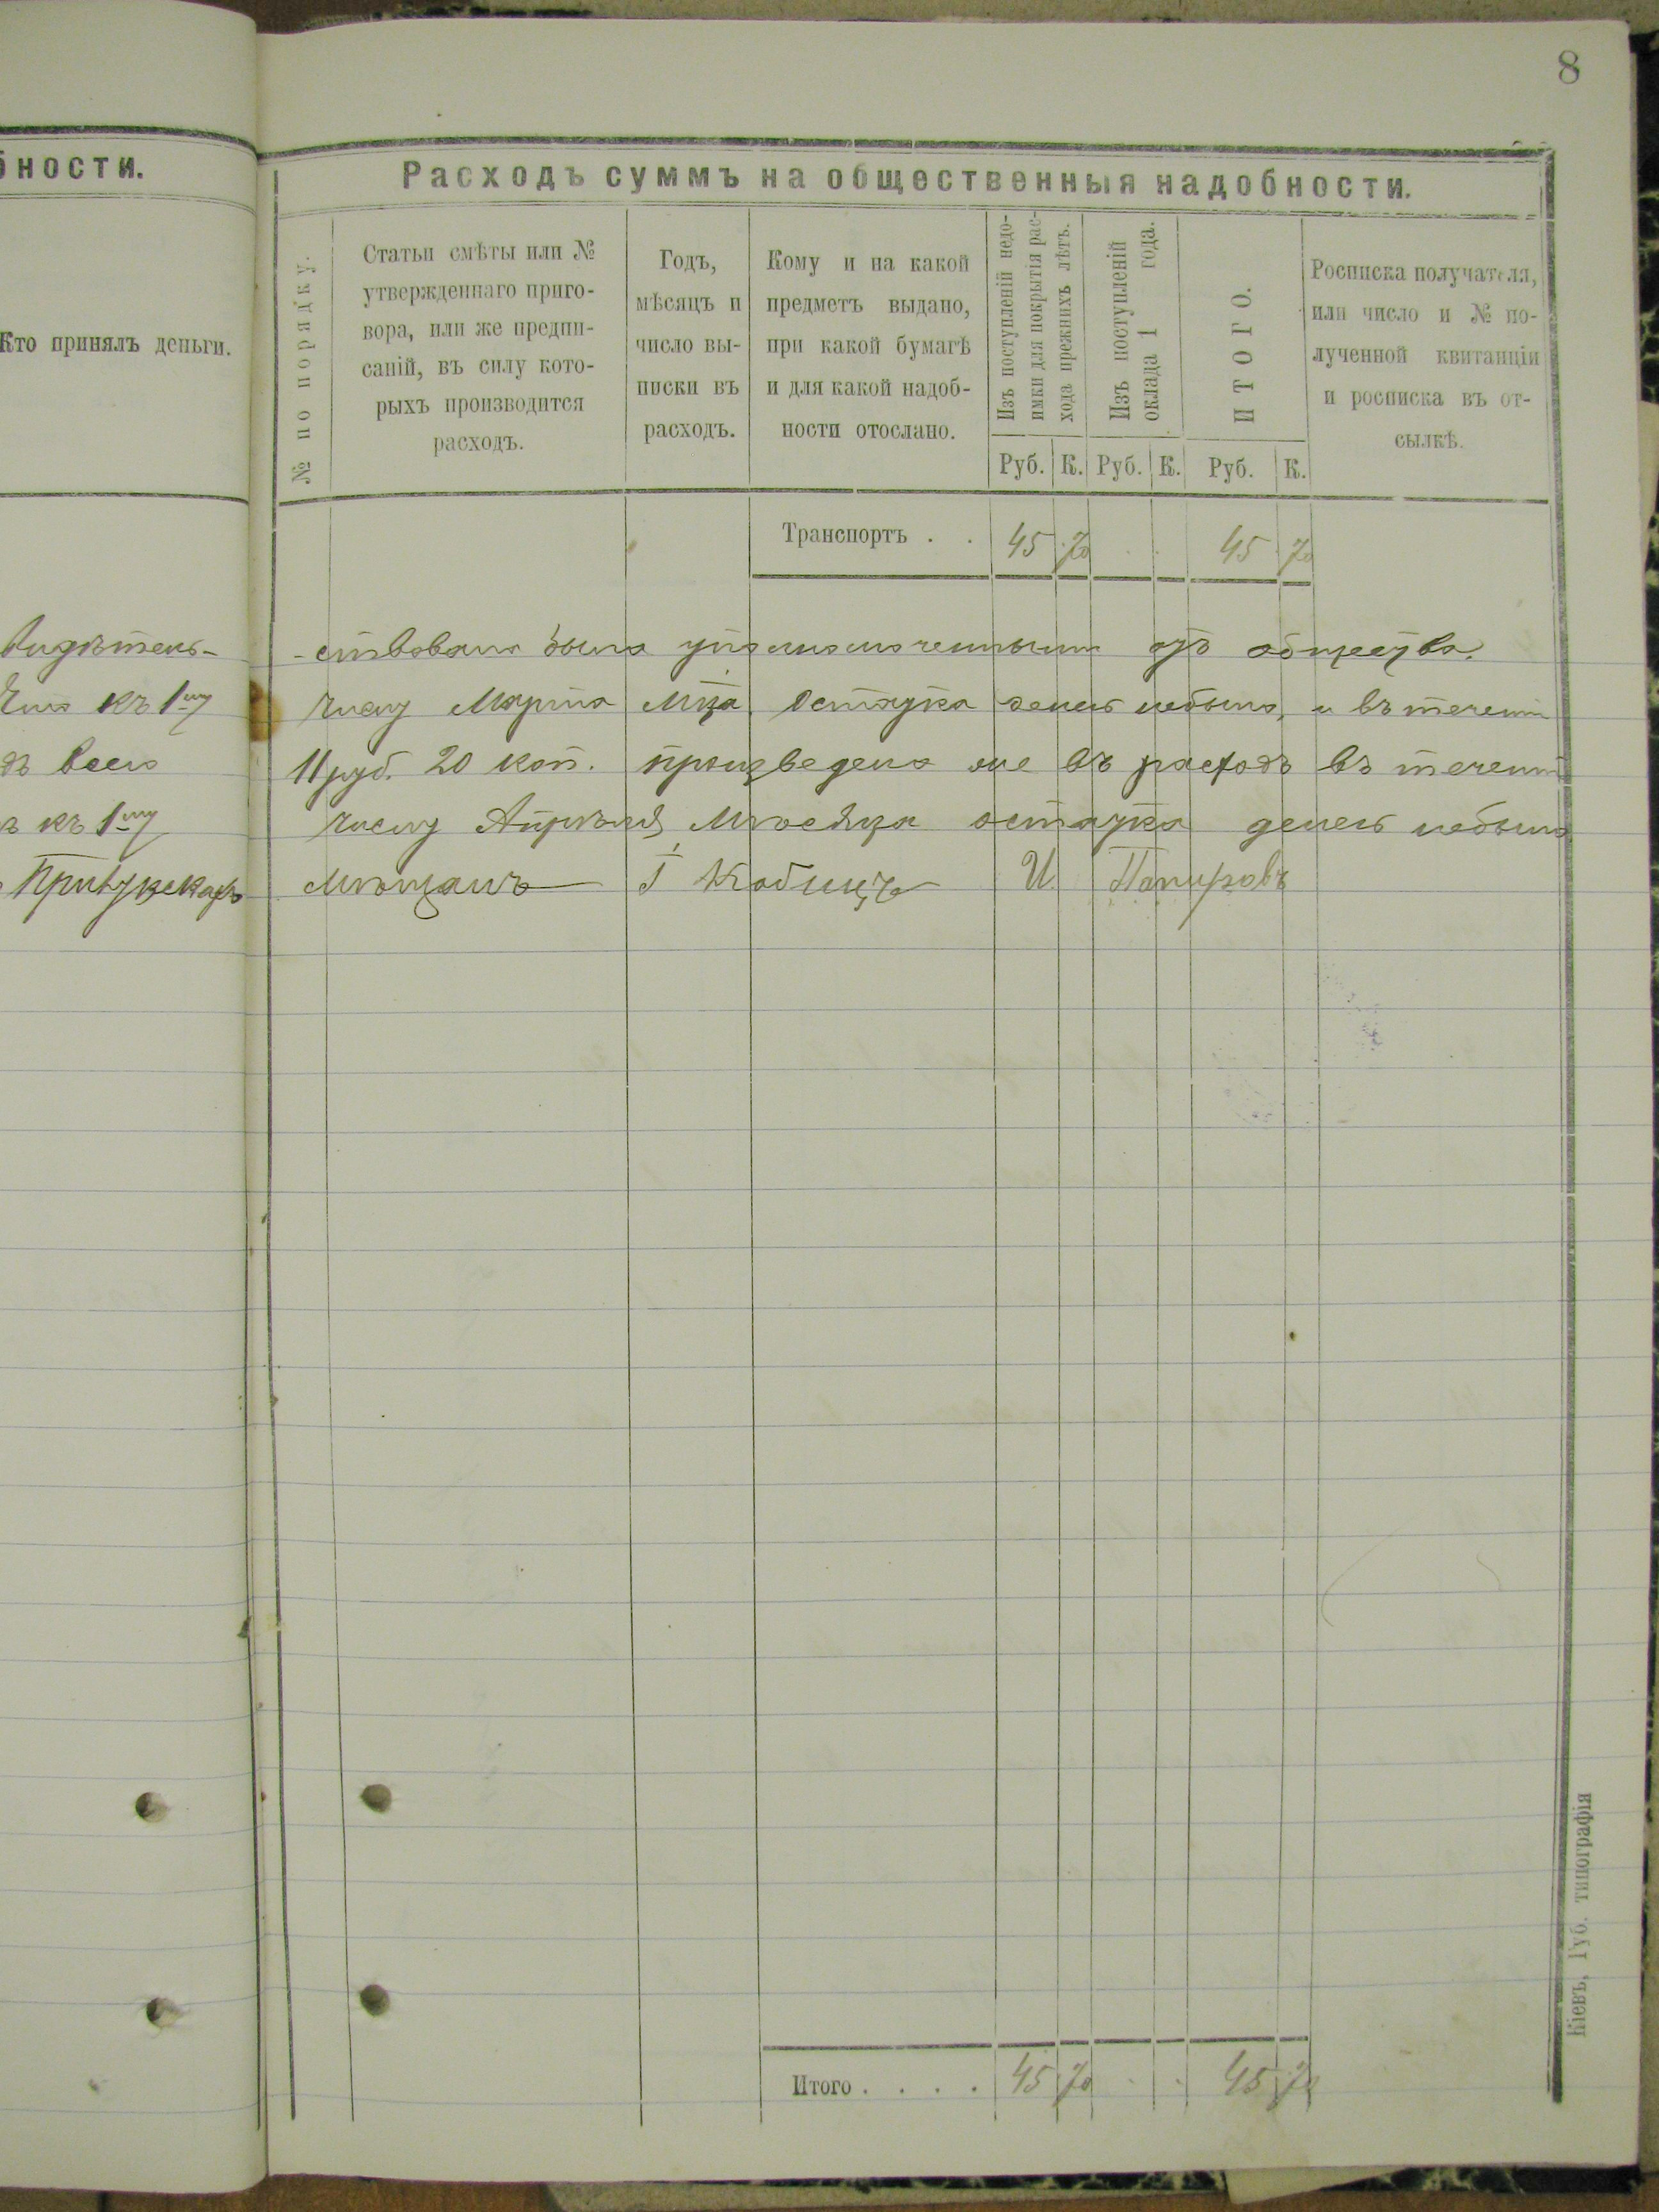 8
бности.
Кто принялъ деньги.
Расходъ суммъ на общественныя надобности.
№ по порядку.
Статьи смѣты или №
утвержденнаго приго-
вора, или же предпи-
саній, въ силу кото-
рыхъ производится
расходъ.
Годъ,
мѣсяцъ и
число вы-
писки въ
расходъ.
Кому и на какой
предметъ выдано,
при какой бумагѣ
и для какой надоб-
ности отослано.
Изъ поступленій недо-
имки для покрытія рас-
хода прежнихъ лѣтъ.
Изъ поступленій
оклада 1 года.
ИТОГО.
Росписка получателя,
или число и № по-
лученной квитанціи
и росписка въ от-
сылкѣ.
Руб. К. Руб. К. Руб. К.
Транспортъ . . 45 70 . . 45 70
-ствовано было уполномоченными отъ общества
къ 1му числу Марта Мца остатка денегъ небыло, и въ течении
всего 11 руб. 20 коп. произведено же въ расходъ въ течении
къ 1му числу Апрѣля Мѣсяца остатка денегъ небыло
мѣщанъ И.
Итого . . . . 45 70 . . 45 70
Кіевъ, Губ. типографія